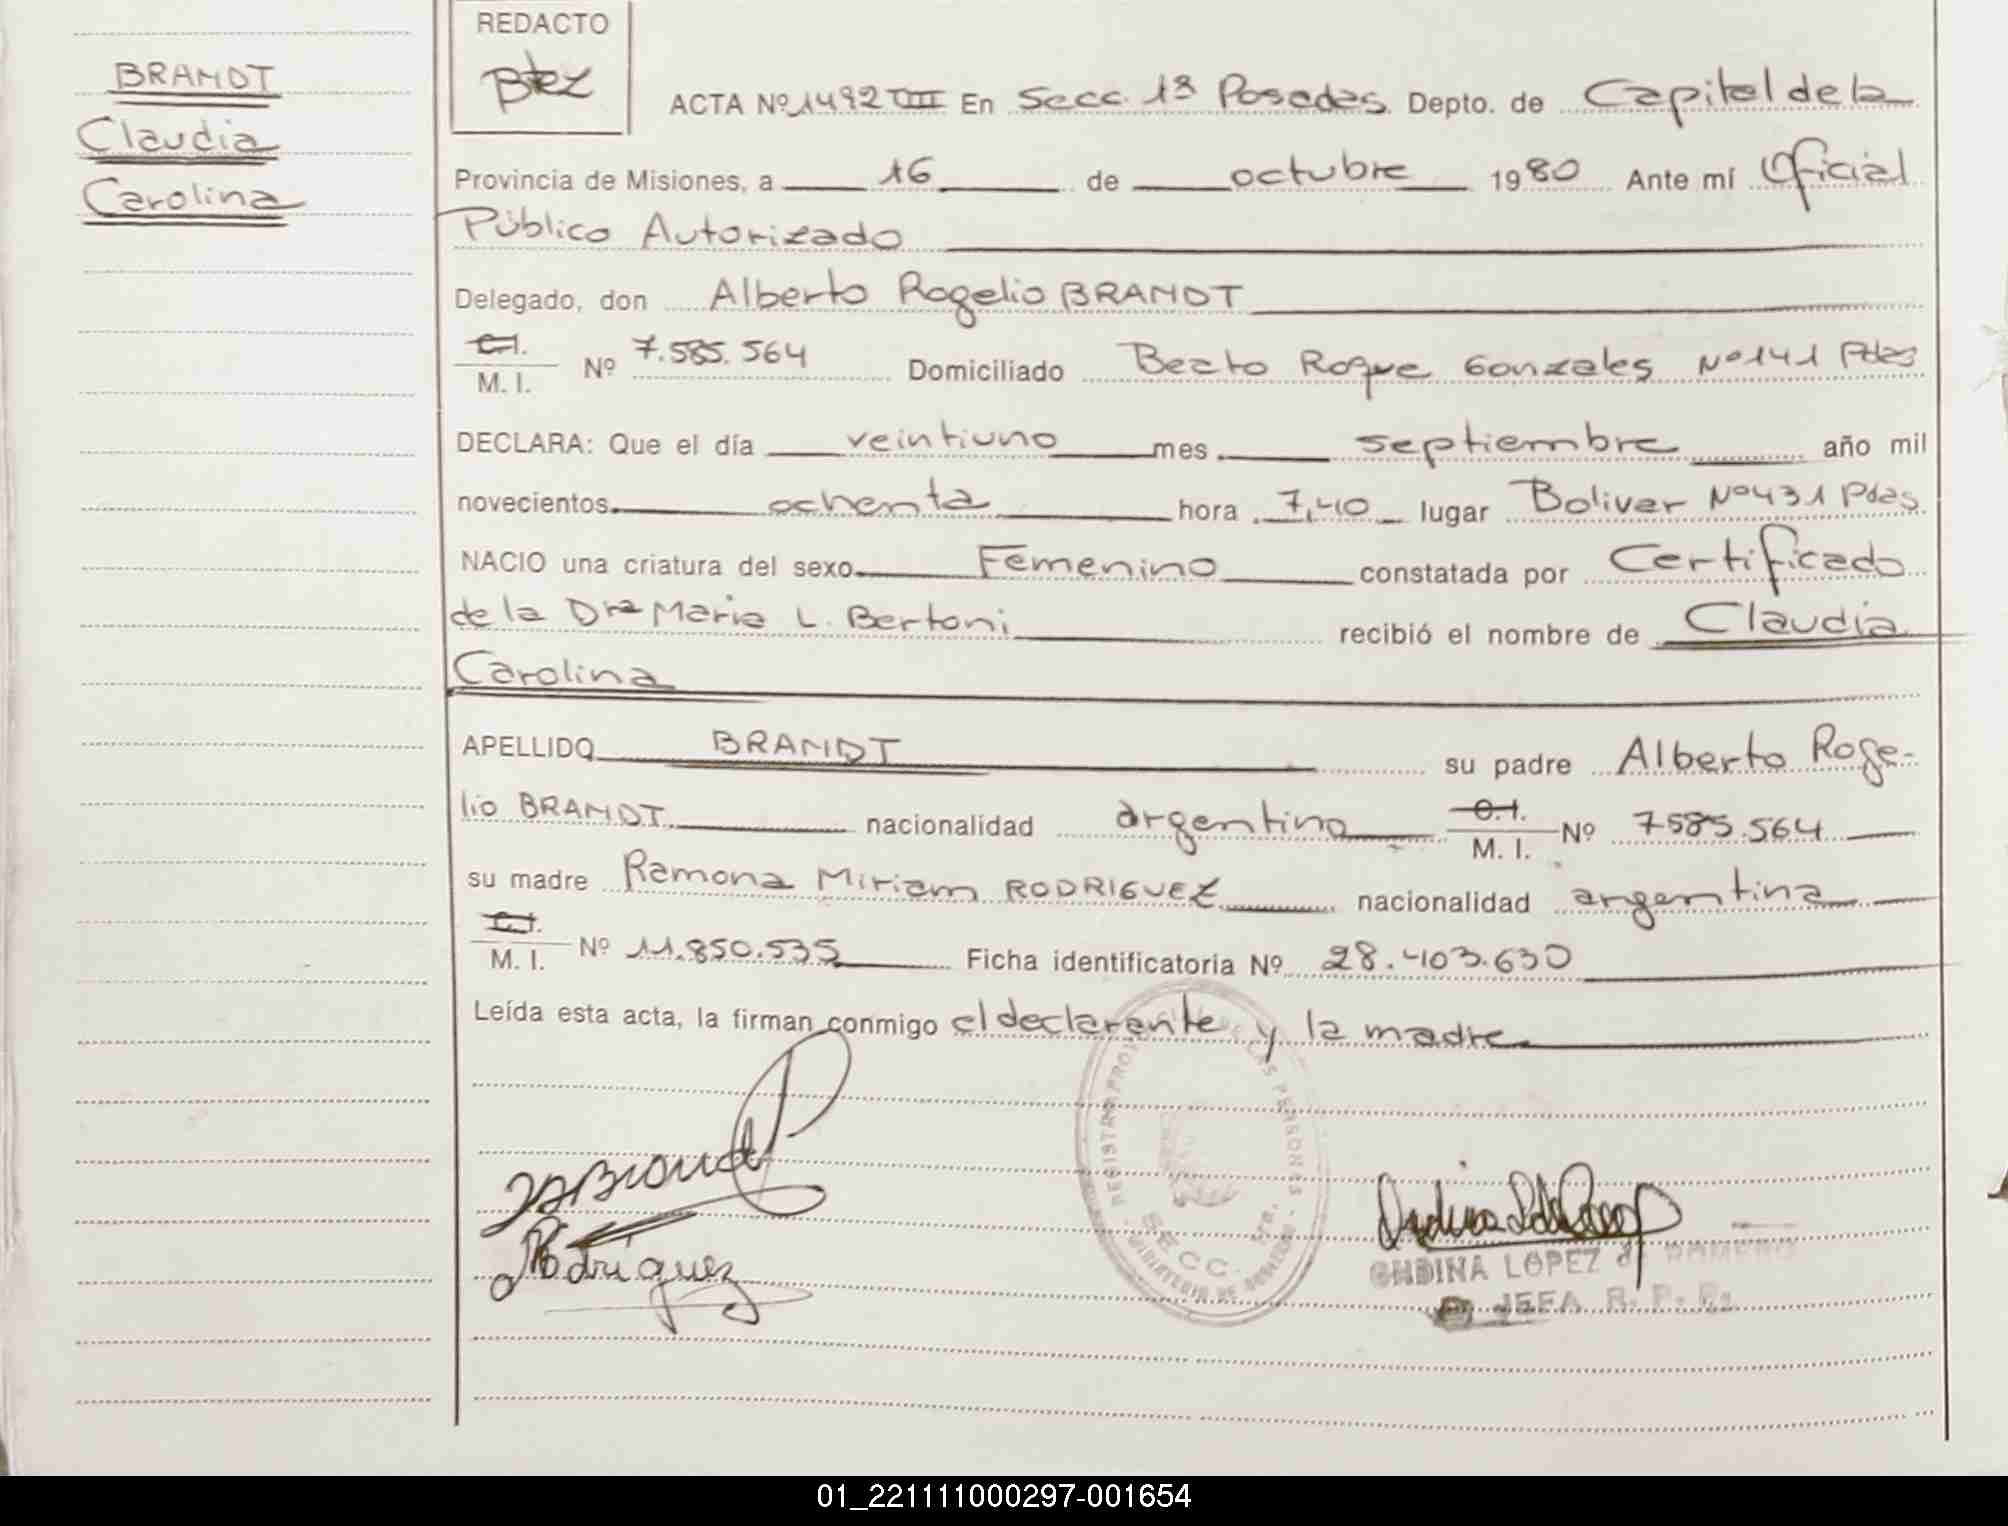 BRANDT
Claudia
Carolina
REDACTO
Btez
ACTA Nº 1492 TIII En Secc. 1ª Posadas. Depto. de Capital de la
Provincia de Misiones, a 16 de octubre 1980 Ante mí Oficial
Público Autorizado
Delegado, don Alberto Rogelio BRANDT
C.I.
M. I. Nº 7.585.564 Domiciliado Beato Roque Gonzales Nº 141 Pdas
DECLARA: Que el día veintiuno mes septiembre año mil
novecientos ochenta hora 7,40 lugar Bolivar Nº 431 Pdas.
NACIO una criatura del sexo Femenino constatada por Certificado
de la Dra Maria L. Bertoni recibió el nombre de Claudia
Carolina
APELLIDO BRANDT su padre Alberto Roge-
lio BRANDT nacionalidad argentino C.I. M. I. Nº 7585.564
su madre Ramona Miriam RODRIGUEZ nacionalidad argentina
C.I.
M. I. Nº 11.850.535 Ficha identificatoria Nº 28.403.630
Leída esta acta, la firman conmigo el declarante y la madre
Rodriguez
SECC. 1ra.
LOPEZ d ROMERO
JEFA R. P. P.
01_221111000297-001654